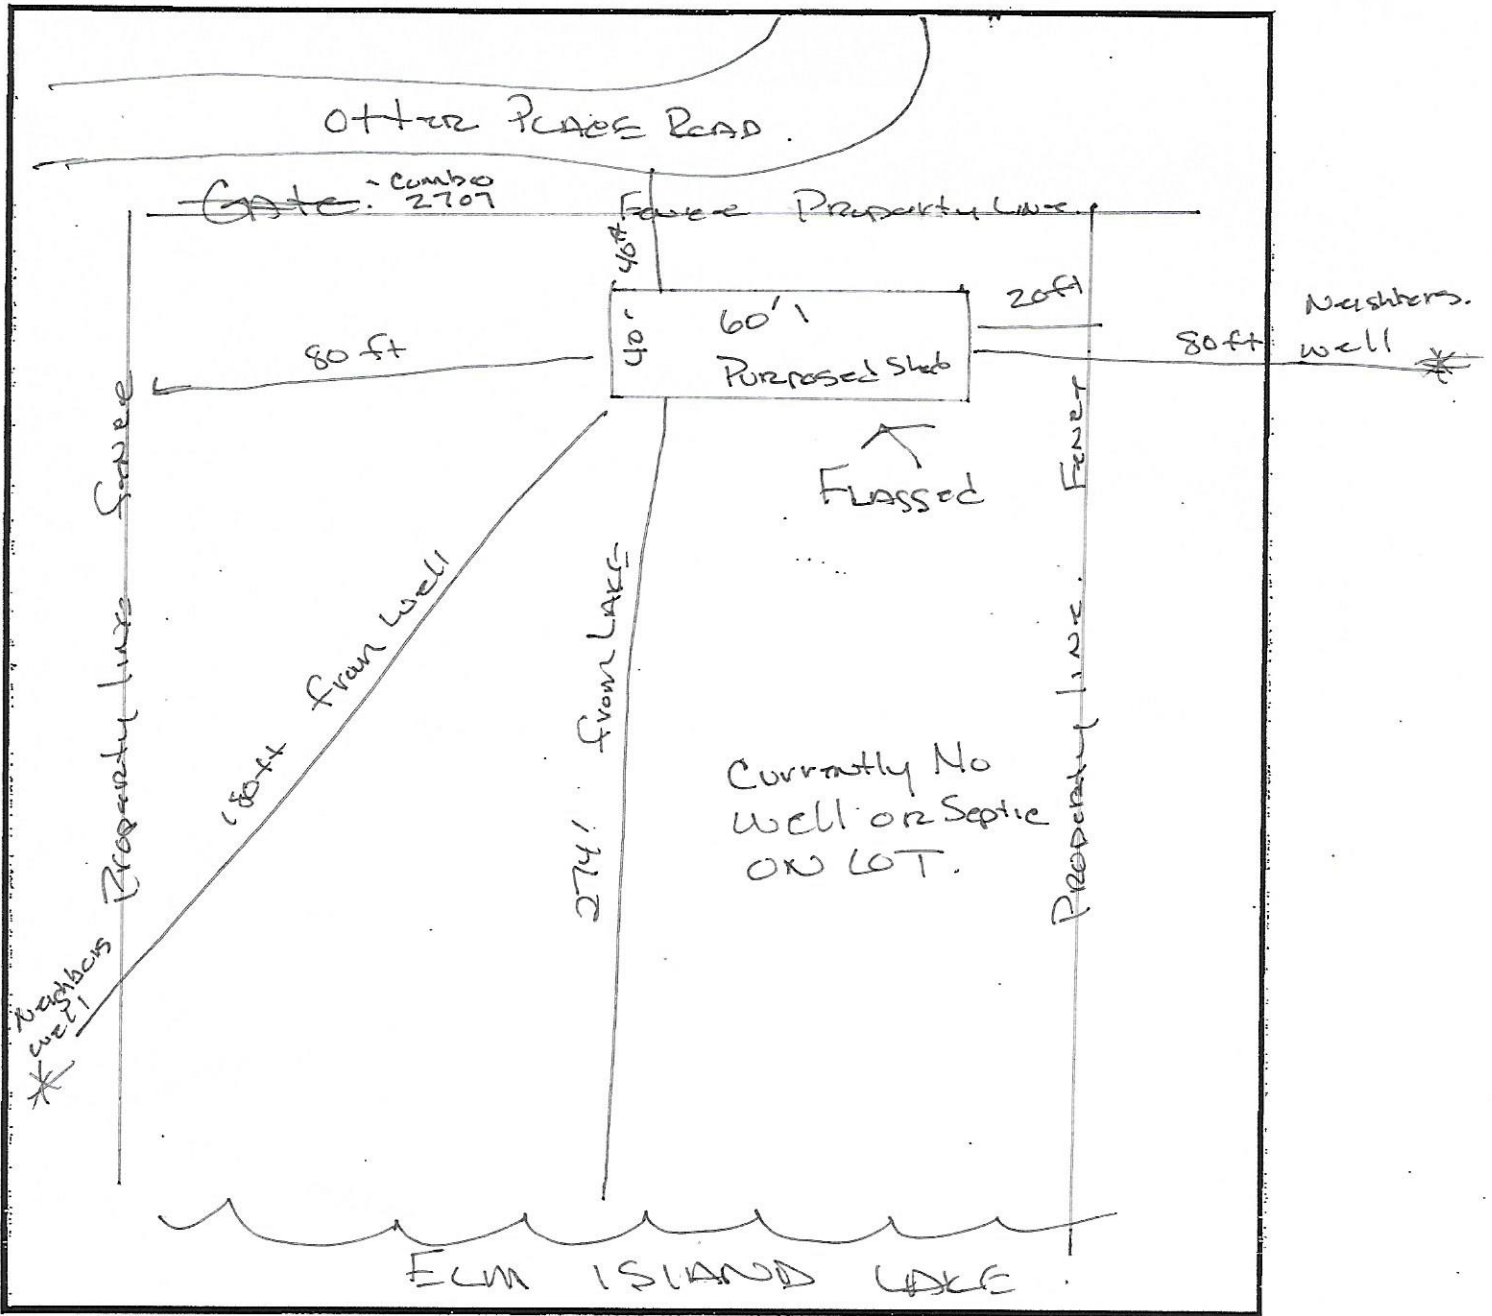 Otter Place Road.
Gate: - Combo
2707
Fence Property Line.
40ft.
20ft
60'
40'
Purposed Shed
80 ft
80ft
Neighbors.
well
Flagged
Property line fence
Property line. Fence
180ft from well
274' from LAKE
Currently No
well or Septic
ON LOT.
Neighbors
well
ELM ISLAND LAKE.